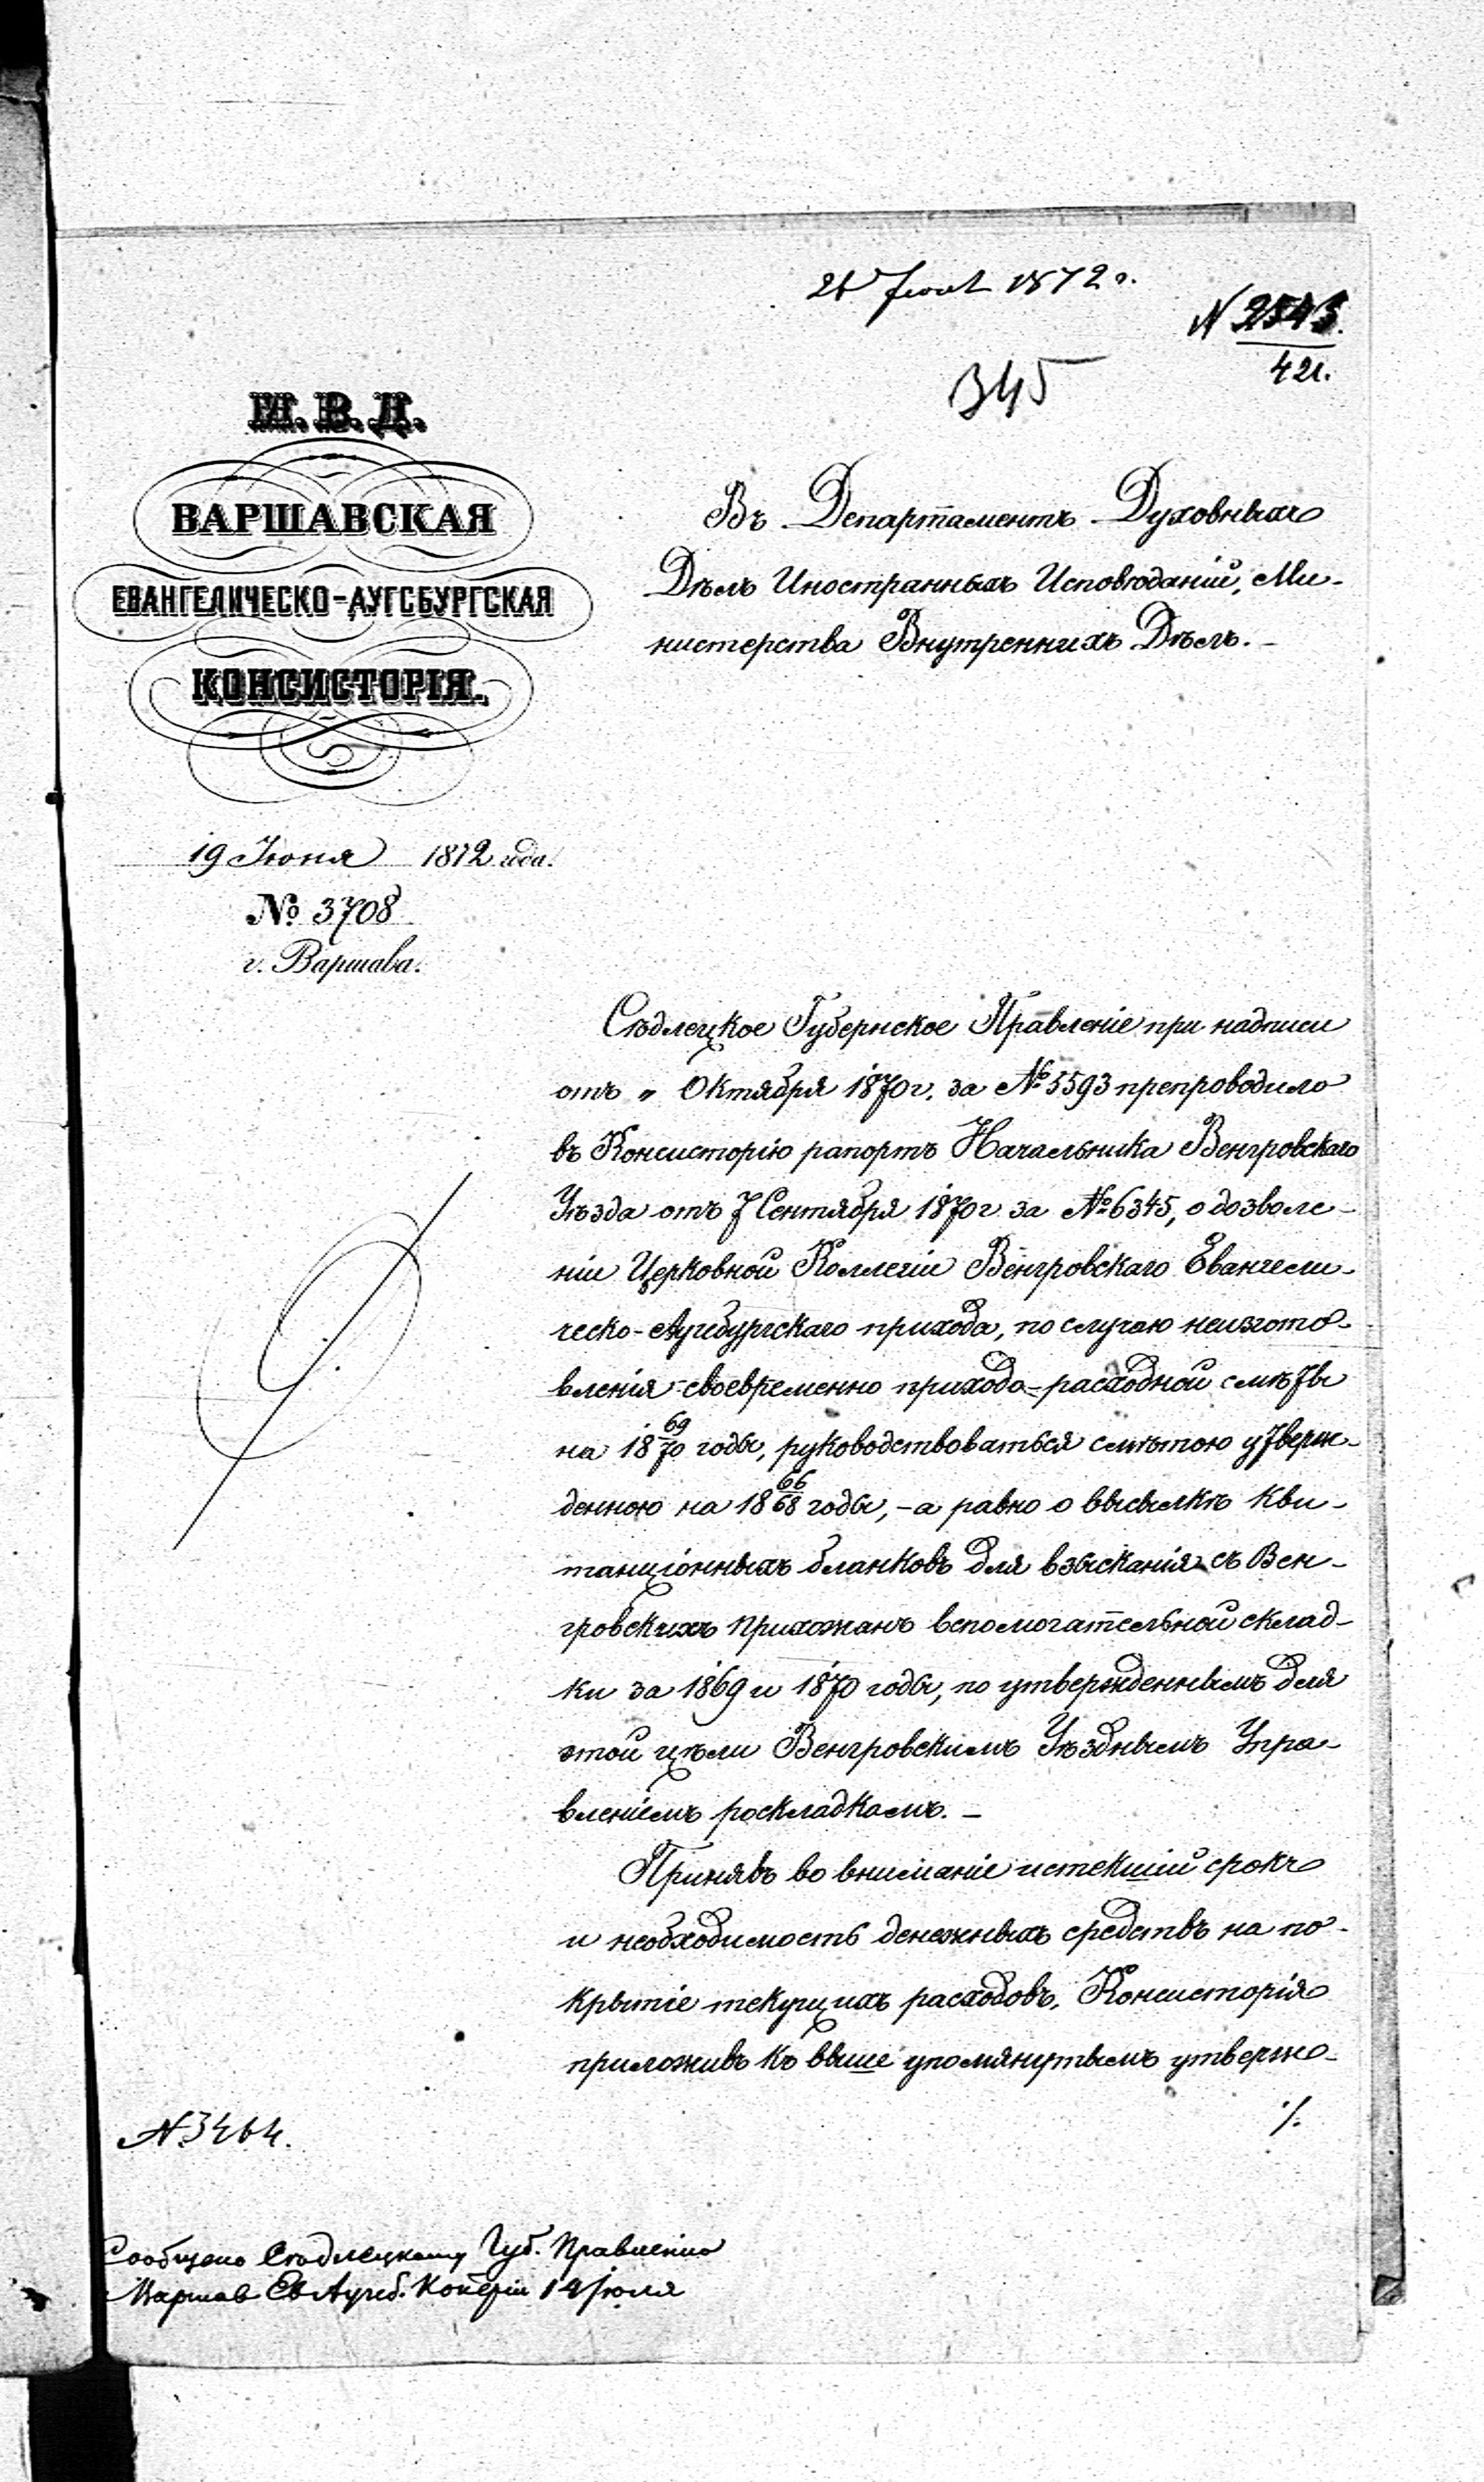 1872 г.
345
421.
М. В. Д.
ВАРШАВСКАЯ
ЕВАНГЕЛИЧЕСКО-АУГСБУРГСКАЯ
КОНСИСТОРІЯ.
19 Іюня 1872 года.
№ 3708
г. Варшава.
Въ Департаментъ Духовныхъ
Дѣлъ Иностранныхъ Исповѣданій, Ми-
нистерства Внутреннихъ Дѣлъ. –
Сѣдлецкое Губернское Правленіе при надписи
отъ „ Октября 1870 г. за № 5593 препроводило
въ Консисторію рапортъ Начальника Венгровскаго
Уѣзда отъ 7 Сентября 1870 г за № 6345, о дозволе-
ніи Церковной Коллегіи Венгровскаго Евангели-
ческо-Аугсбургскаго прихода, по случаю неизгото-
вленія своевременно приходо-расходной смѣты
на 18 69/70 годы, руководствоваться смѣтою утверж-
денною на 18 66/68 годы, – а равно о высылкѣ кви-
танціонныхъ бланковъ для взысканія съ Вен-
гровскихъ прихожанъ вспомогательной склад-
ки за 1869 и 1870 годы, по утвержденнымъ для
этой цѣли Венгровскимъ Уѣзднымъ Упра-
вленіемъ роскладкамъ. –
Принявъ во вниманіе истекшій срокъ
и необходимость денежныхъ средствъ на по-
крытіе текущихъ расходовъ, Консисторія
приложивъ къ выше упомянутымъ утверж-
./.
N 3464.
Сообщено Сѣдлецкому Губ. Правленію
Варшав Ев Аугсб. Конс 14 Іюля